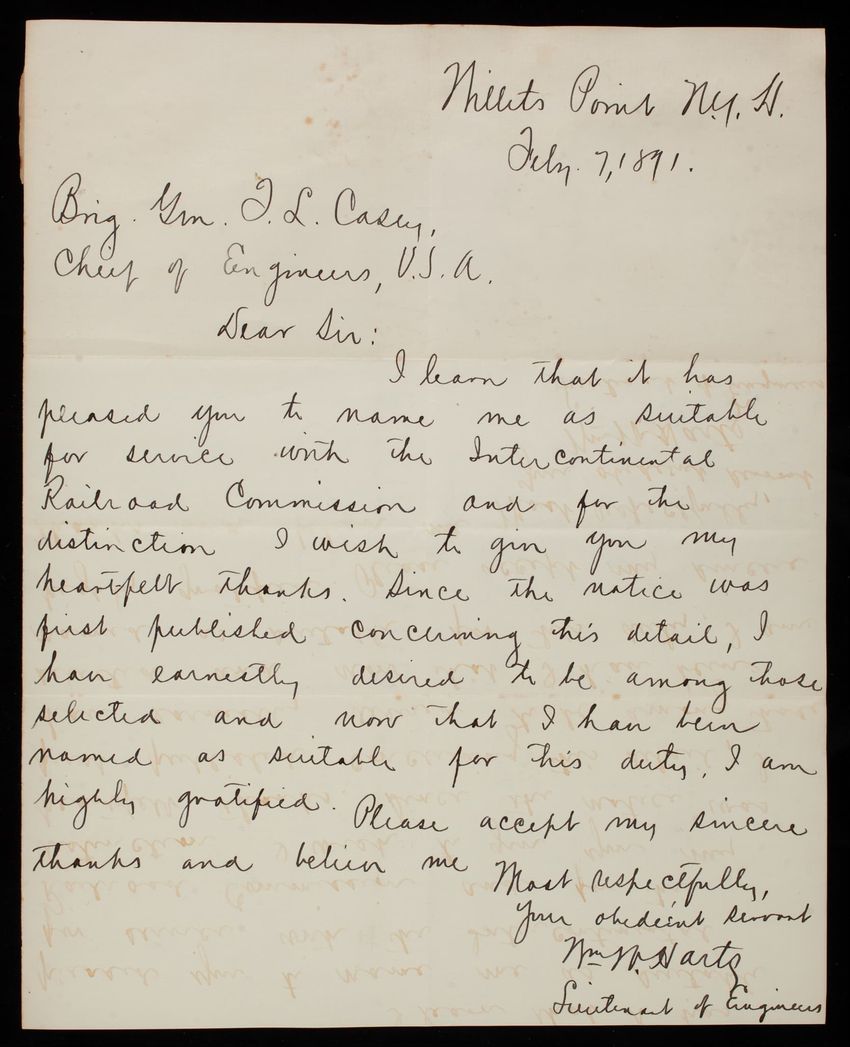 Willets Point N.Y. H.
Feby. 7, 1891.
Brig. Gen. T. L. Casey,
Chief of Engineers, U.S.A.
Dear Sir:
I learn that it has
pleased you to name me as suitable
for service with the Intercontinental
Railroad Commission and for the
distinction I wish to give you my
heartfelt thanks. Since the notice was
first published concerning this detail, I
have earnestly desired to be among those
selected and now that I have been
named as suitable for this duty, I am
highly gratified.
Please accept my sincere
thanks and believe me
Most respectfully,
Your obedient servant
Wm W. Harts
Lieutenant of Engineers